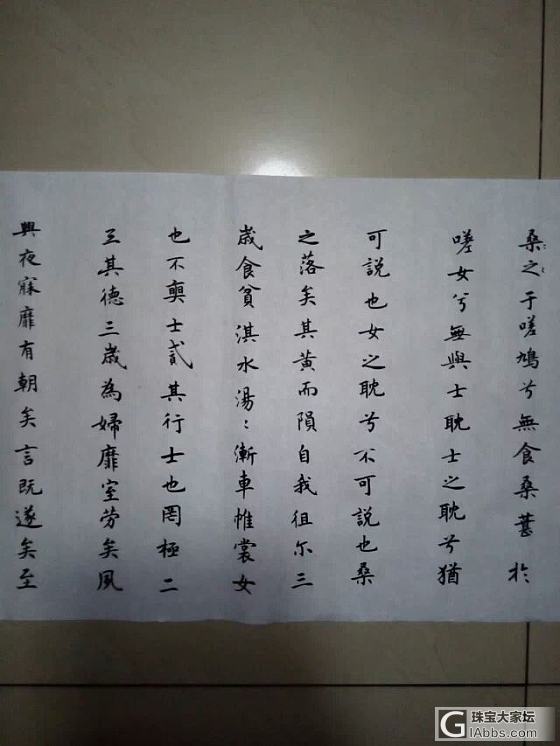 桑之于嗟鳩兮無食桑葚於
嗟女兮無與士耽士之耽兮猶
可說也女之耽兮不可說也桑
之落矣其黃而隕自我徂尔三
歳食貧淇水湯:漸車帷裳女
也不爽士貳其行士也罔極二
三其德三歳為婦靡室勞矣風
興夜寐靡有朝矣言既遂矣至
珠宝大家坛
GIAbbs.com